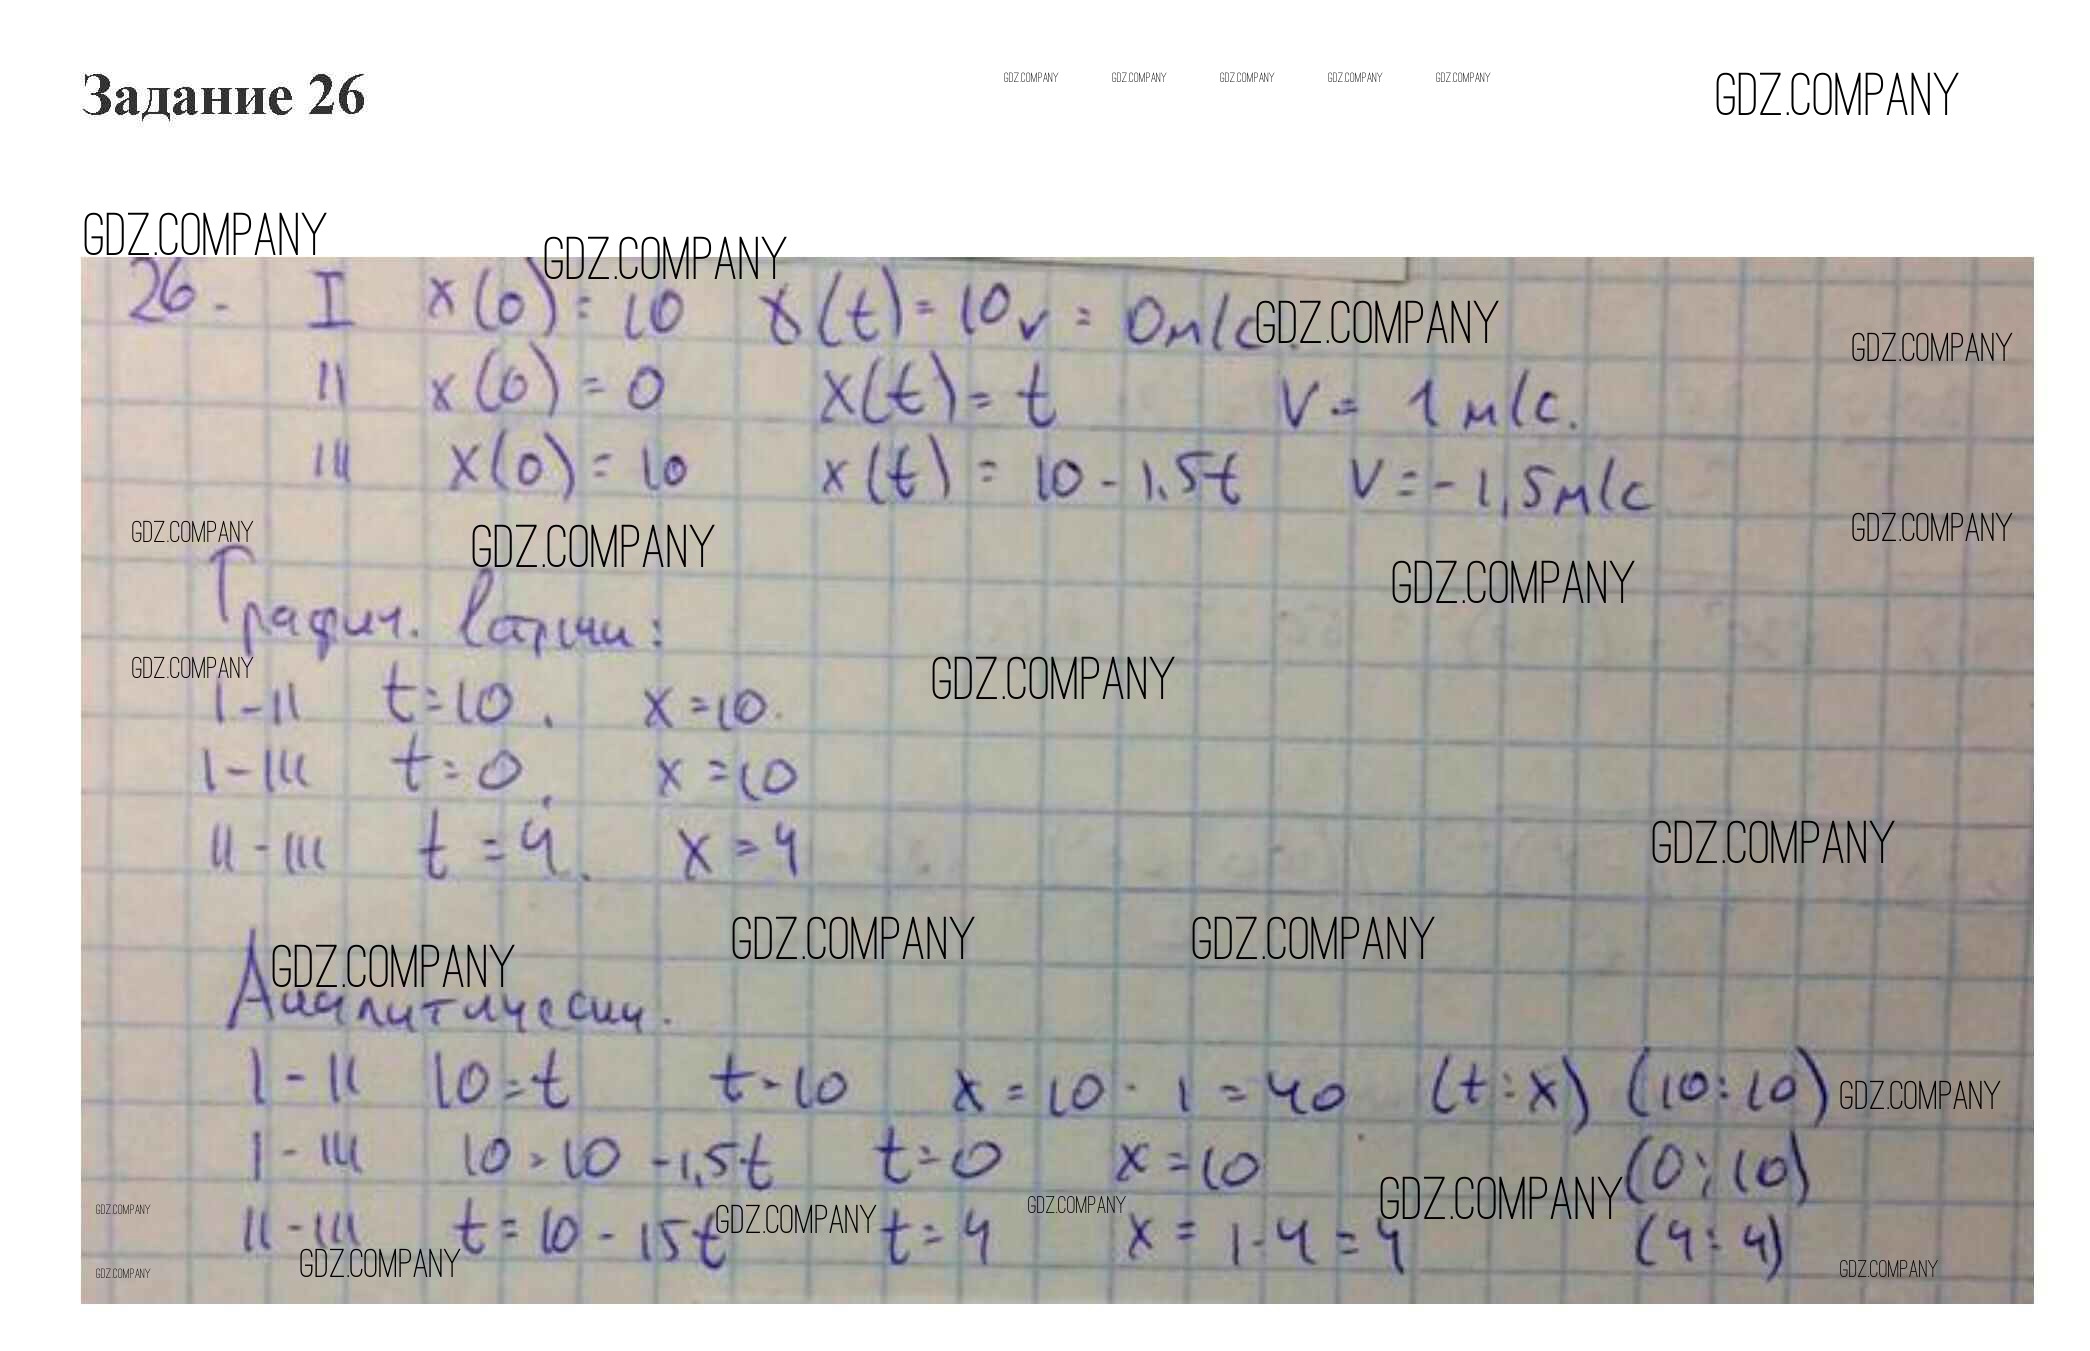 Задание 26 GDZ.COMPANY GDZ.COMPANY GDZ.COMPANY GDZ.COMPANY GDZ.COMPANY GDZ.COMPANY
GDZ.COMPANY GDZ.COMPANY
26. I x(0) = 10 x(t) = 10 v = 0м/с. GDZ.COMPANY GDZ.COMPANY
II x(0) = 0 x(t) = t v = 1 м/с.
III x(0) = 10 x(t) = 10 - 1.5t v = - 1,5м/с
GDZ.COMPANY GDZ.COMPANY GDZ.COMPANY
GDZ.COMPANY
Графич.
GDZ.COMPANY GDZ.COMPANY
I - II t = 10. x = 10.
I - III t = 0. x = 10
II - III t = 4. x = 4
GDZ.COMPANY
GDZ.COMPANY GDZ.COMPANY GDZ.COMPANY
Аналитически.
I - II 10 = t t = 10 x = 10 · 1 = 40 (t : x) (10 : 10) GDZ.COMPANY
I - III 10 = 10 - 1,5t t = 0 x = 10 (0 ; 10)
GDZ.COMPANY GDZ.COMPANY GDZ.COMPANY GDZ.COMPANY
II - III t = 10 - 15t t = 4 x = 1 · 4 = 4 (4 : 4)
GDZ.COMPANY GDZ.COMPANY GDZ.COMPANY